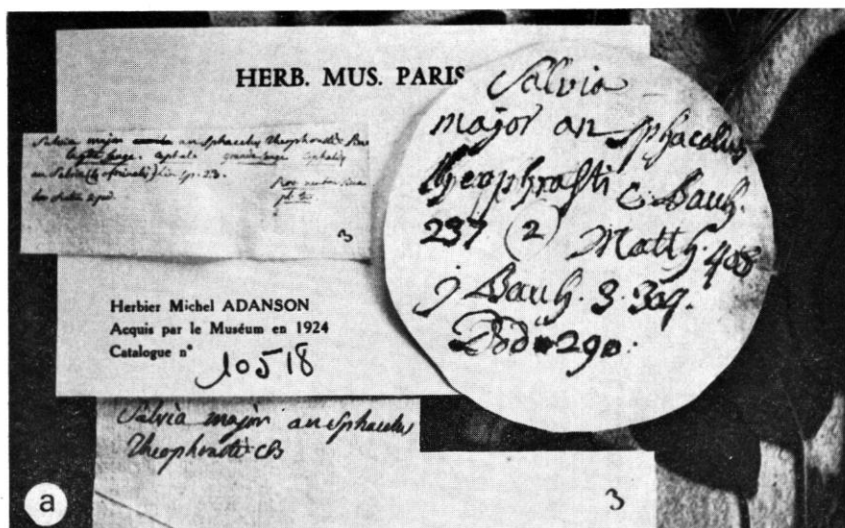 HERB. MUS. PARIS
Salvia major an Sphacelus Theophrasti
an Salvia (1. officinalis) Lin. Sp. 23.
3
Salvia
major an sphacelus
theophrasti C Bauh.
237 (2) Matth. 408
j Bauh. 3. 304.
Dod 290.
Herbier Michel ADANSON
Acquis par le Muséum en 1924
Catalogue n° 10518
Salvia major an Sphacelus
Theophrasti CB
3
a